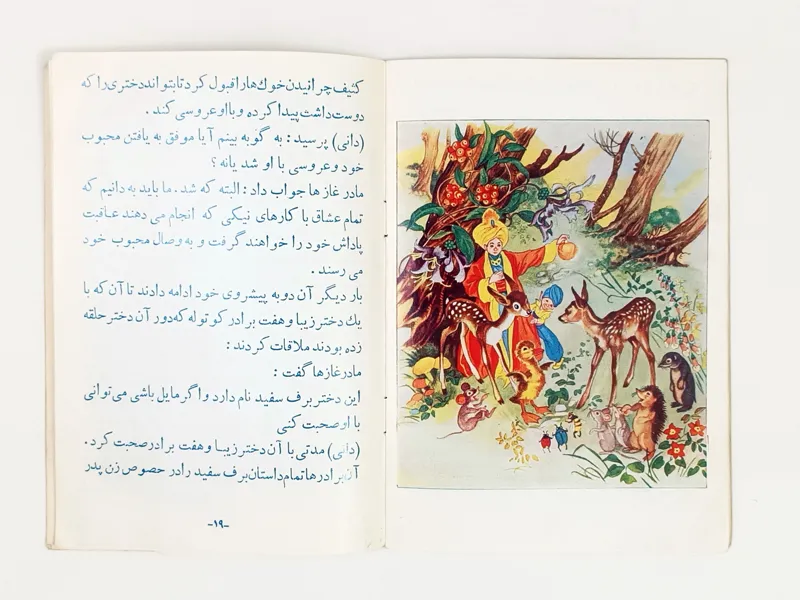 کثیف چرانیدن خوك ها را قبول کرد تا بتواند دختری را که
دوست داشت پیدا کرده و با او عروسی کند .
(دانی) پرسید : به گو به بینم آیا موفق به یافتن محبوب
خود و عروسی با او شد یا نه ؟
مادر غاز ها جواب داد : البته که شد . ما باید به دانیم که
تمام عشاق با کارهای نیکی که انجام می دهند عاقبت
پاداش خود را خواهند گرفت و به وصال محبوب خود
می رسند .
بار دیگر آن دو به پیشروی خود ادامه دادند تا آن که با
یك دختر زیبا و هفت برادر کوتوله که دور آن دختر حلقه
زده بودند ملاقات کردند :
مادر غازها گفت :
این دختر برف سفید نام دارد و اگر مایل باشی می توانی
با او صحبت کنی
(دانی) مدتی با آن دختر زیبا و هفت برادر صحبت کرد .
آن برادرها تمام داستان برف سفید را در حصوص زن پدر
-۱۹-